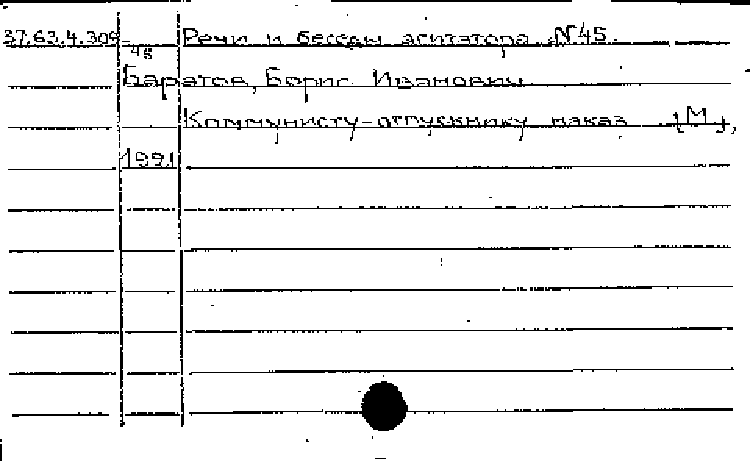 37.63.4.309- Речи и беседы агитатора №45.
45
Баратов, Борис Иванович
Коммунисту-отпускнику наказ [М],
1991